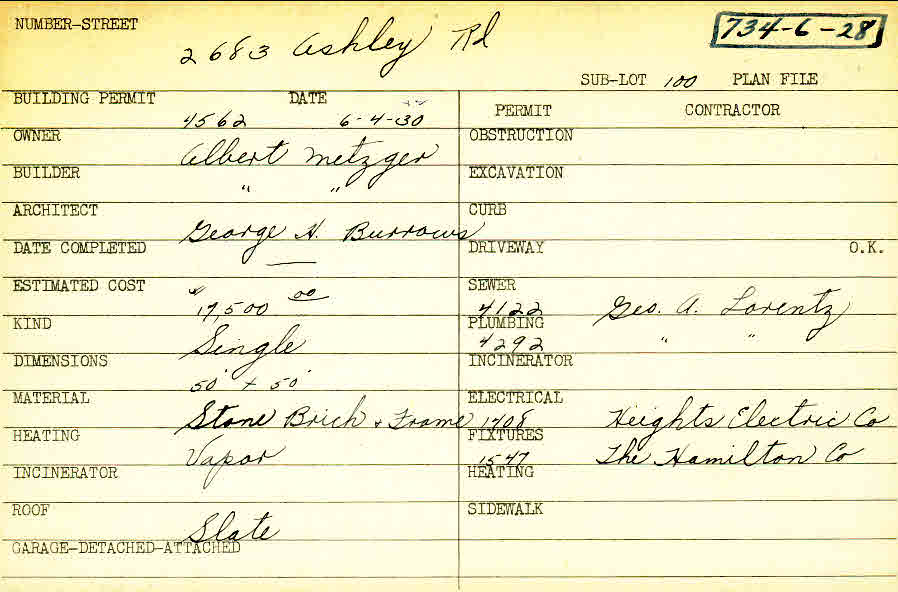 NUMBER-STREET 2683 Ashley Rd 734-6-28
SUB-LOT 100 PLAN FILE
BUILDING PERMIT 4562 DATE 6-4-30
PERMIT CONTRACTOR
OWNER Albert Metzger
OBSTRUCTION
BUILDER " "
EXCAVATION
ARCHITECT George H. Burrows
CURB
DATE COMPLETED —
DRIVEWAY O.K.
ESTIMATED COST 17,500 00
SEWER 4122 Geo. A. Lorentz
KIND Single
PLUMBING 4292 " "
DIMENSIONS 50' + 50'
INCINERATOR
MATERIAL Stone Brick & Frame
ELECTRICAL 1708 Heights Electric Co
HEATING Vapor
FIXTURES 1547 The Hamilton Co
INCINERATOR
HEATING
ROOF Slate
SIDEWALK
GARAGE-DETACHED-ATTACHED